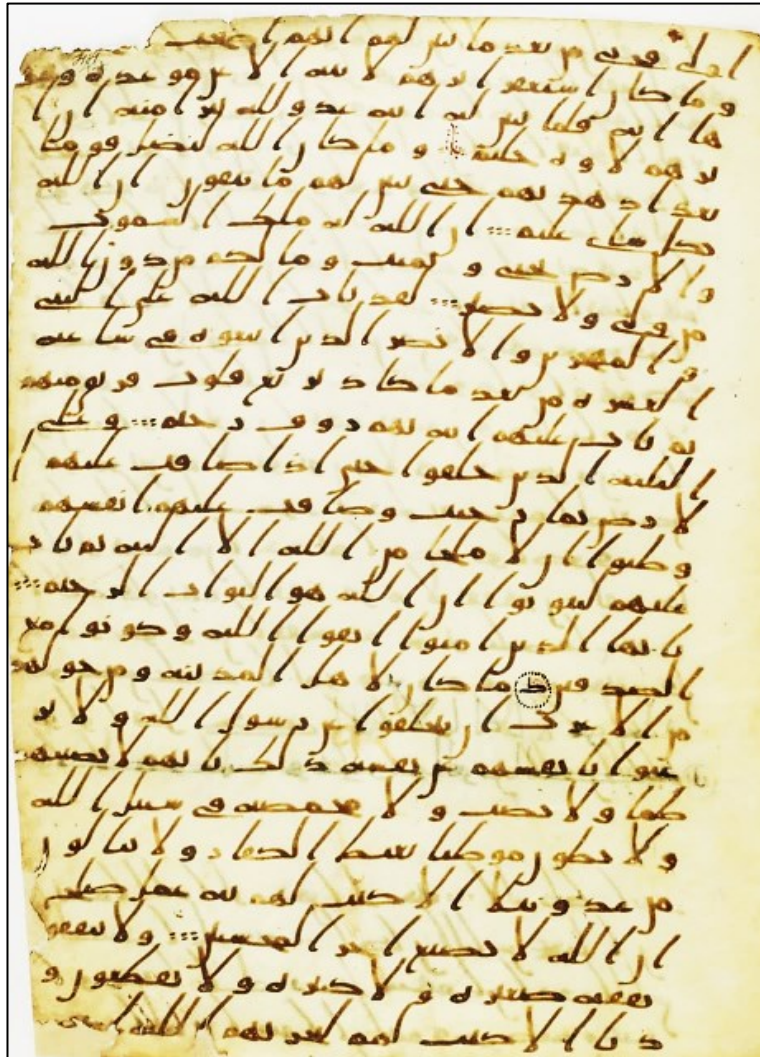 اولى قربى من بعد ما تبين لهم انهم اصحب
وما كان استغفر ابرهيم لابيه الا عن موعدة وعد
ها اياه فلما تبين له انه عدو لله تبرا منه ان ا
برهيم لاوه حليم وما كان الله ليضل قوما
بعد اذ هديهم حتى يبين لهم ما يتقون ان الله
بكل شى عليم ان الله له ملك السموت
والارض يحيى ويميت وما لكم من دون الله
من ولى ولا نصير لقد تاب الله على النبى
والمهجرين والانصر الذين اتبعوه فى ساعة
العسرة من بعد ما كاد يزيغ قلوب فريق منهم
ثم تاب عليهم انه بهم روف رحيم وعلى
الثلثة الذين خلفوا حتى اذا ضاقت عليهم ا
لارض بما رحبت وضاقت عليهم انفسهم
وظنوا ان لا ملجا من الله الا اليه ثم تاب
عليهم ليتوبوا ان الله هو التواب الرحيم
يايها الذين امنوا اتقوا الله وكونوا مع
الصدقين ما كان لاهل المدينة ومن حولهم
من الاعرب ان يتخلفوا عن رسول الله ولا ير
غبوا بانفسهم عن نفسه ذلك بانهم لا يصيبهم
ظما ولا نصب ولا مخمصة فى سبيل الله
ولا يطون موطيا يغيظ الكفار ولا ينالون
من عدو نيلا الا كتب لهم به عمل صلح
ان الله لا يضيع اجر المحسنين ولا ينفقو
نفقة صغيرة ولا كبيرة ولا يقطعون و
ديا الا كتب لهم ليجزيهم الله احسن